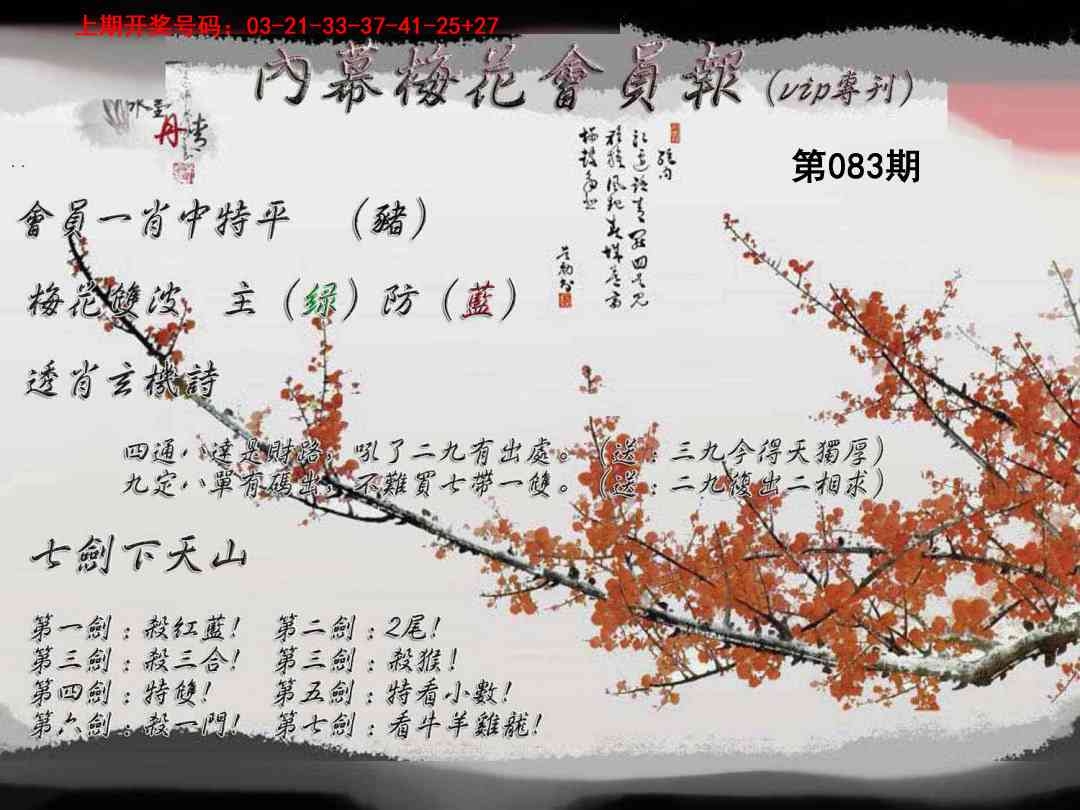 上期开奖号码：03-21-33-37-41-25+27
內幕梅花會員報（vip專刊）
水墨
丹青
第083期
會員一肖中特平 （豬）
梅花雙波 主（绿）防（藍）
透肖玄機詩
四通八達是財路，吼了二九有出處。（送：三九今得天獨厚）
九定八單有碼出，不難買七帶一雙。（送：二九復出二相求）
七劍下天山
第一劍：殺紅藍！ 第二劍：2尾！
第三劍：殺三合！ 第三劍：殺猴！
第四劍：特雙！ 第五劍：特看小數！
第六劍：殺一門！ 第七劍：看牛羊雞龍！